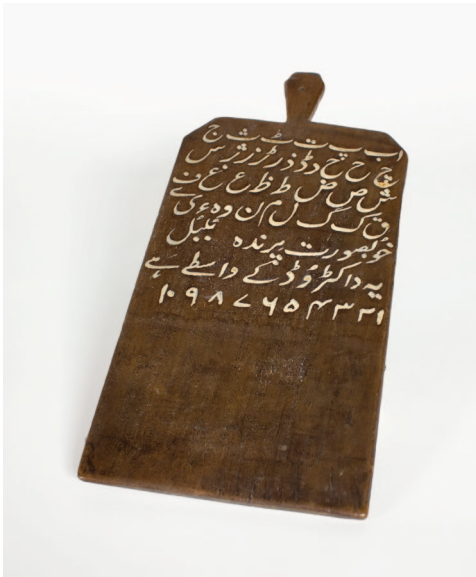 ا ب پ ت ٹ ث ج
چ ح خ د ڈ ذ ر ڑ ز ژ س
ش ص ض ط ظ ع غ ف
ق ک گ ل م ن و ہ ء ی ے
خوبصورت پرندہ بلبل
یہ ڈاکٹر وُڈ کے واسطے ہے
۱ ۲ ۳ ۴ ۵ ۶ ۷ ۸ ۹ ۱۰